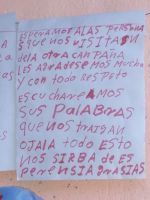 ESPERAMOS A LAS PERSONA
S QUE NOS VISITAN
DE LA OTRA CAMPAÑA
LES AGRADESEMOS MUCHA
Y CON TODO RESPETO
ESCUCHAREMOS
SUS PALABRAS
QUE NOS TRAIGAN
OJALA TODO ESTO
NOS SIRBA DE ES
PERENSIA GRASIAS